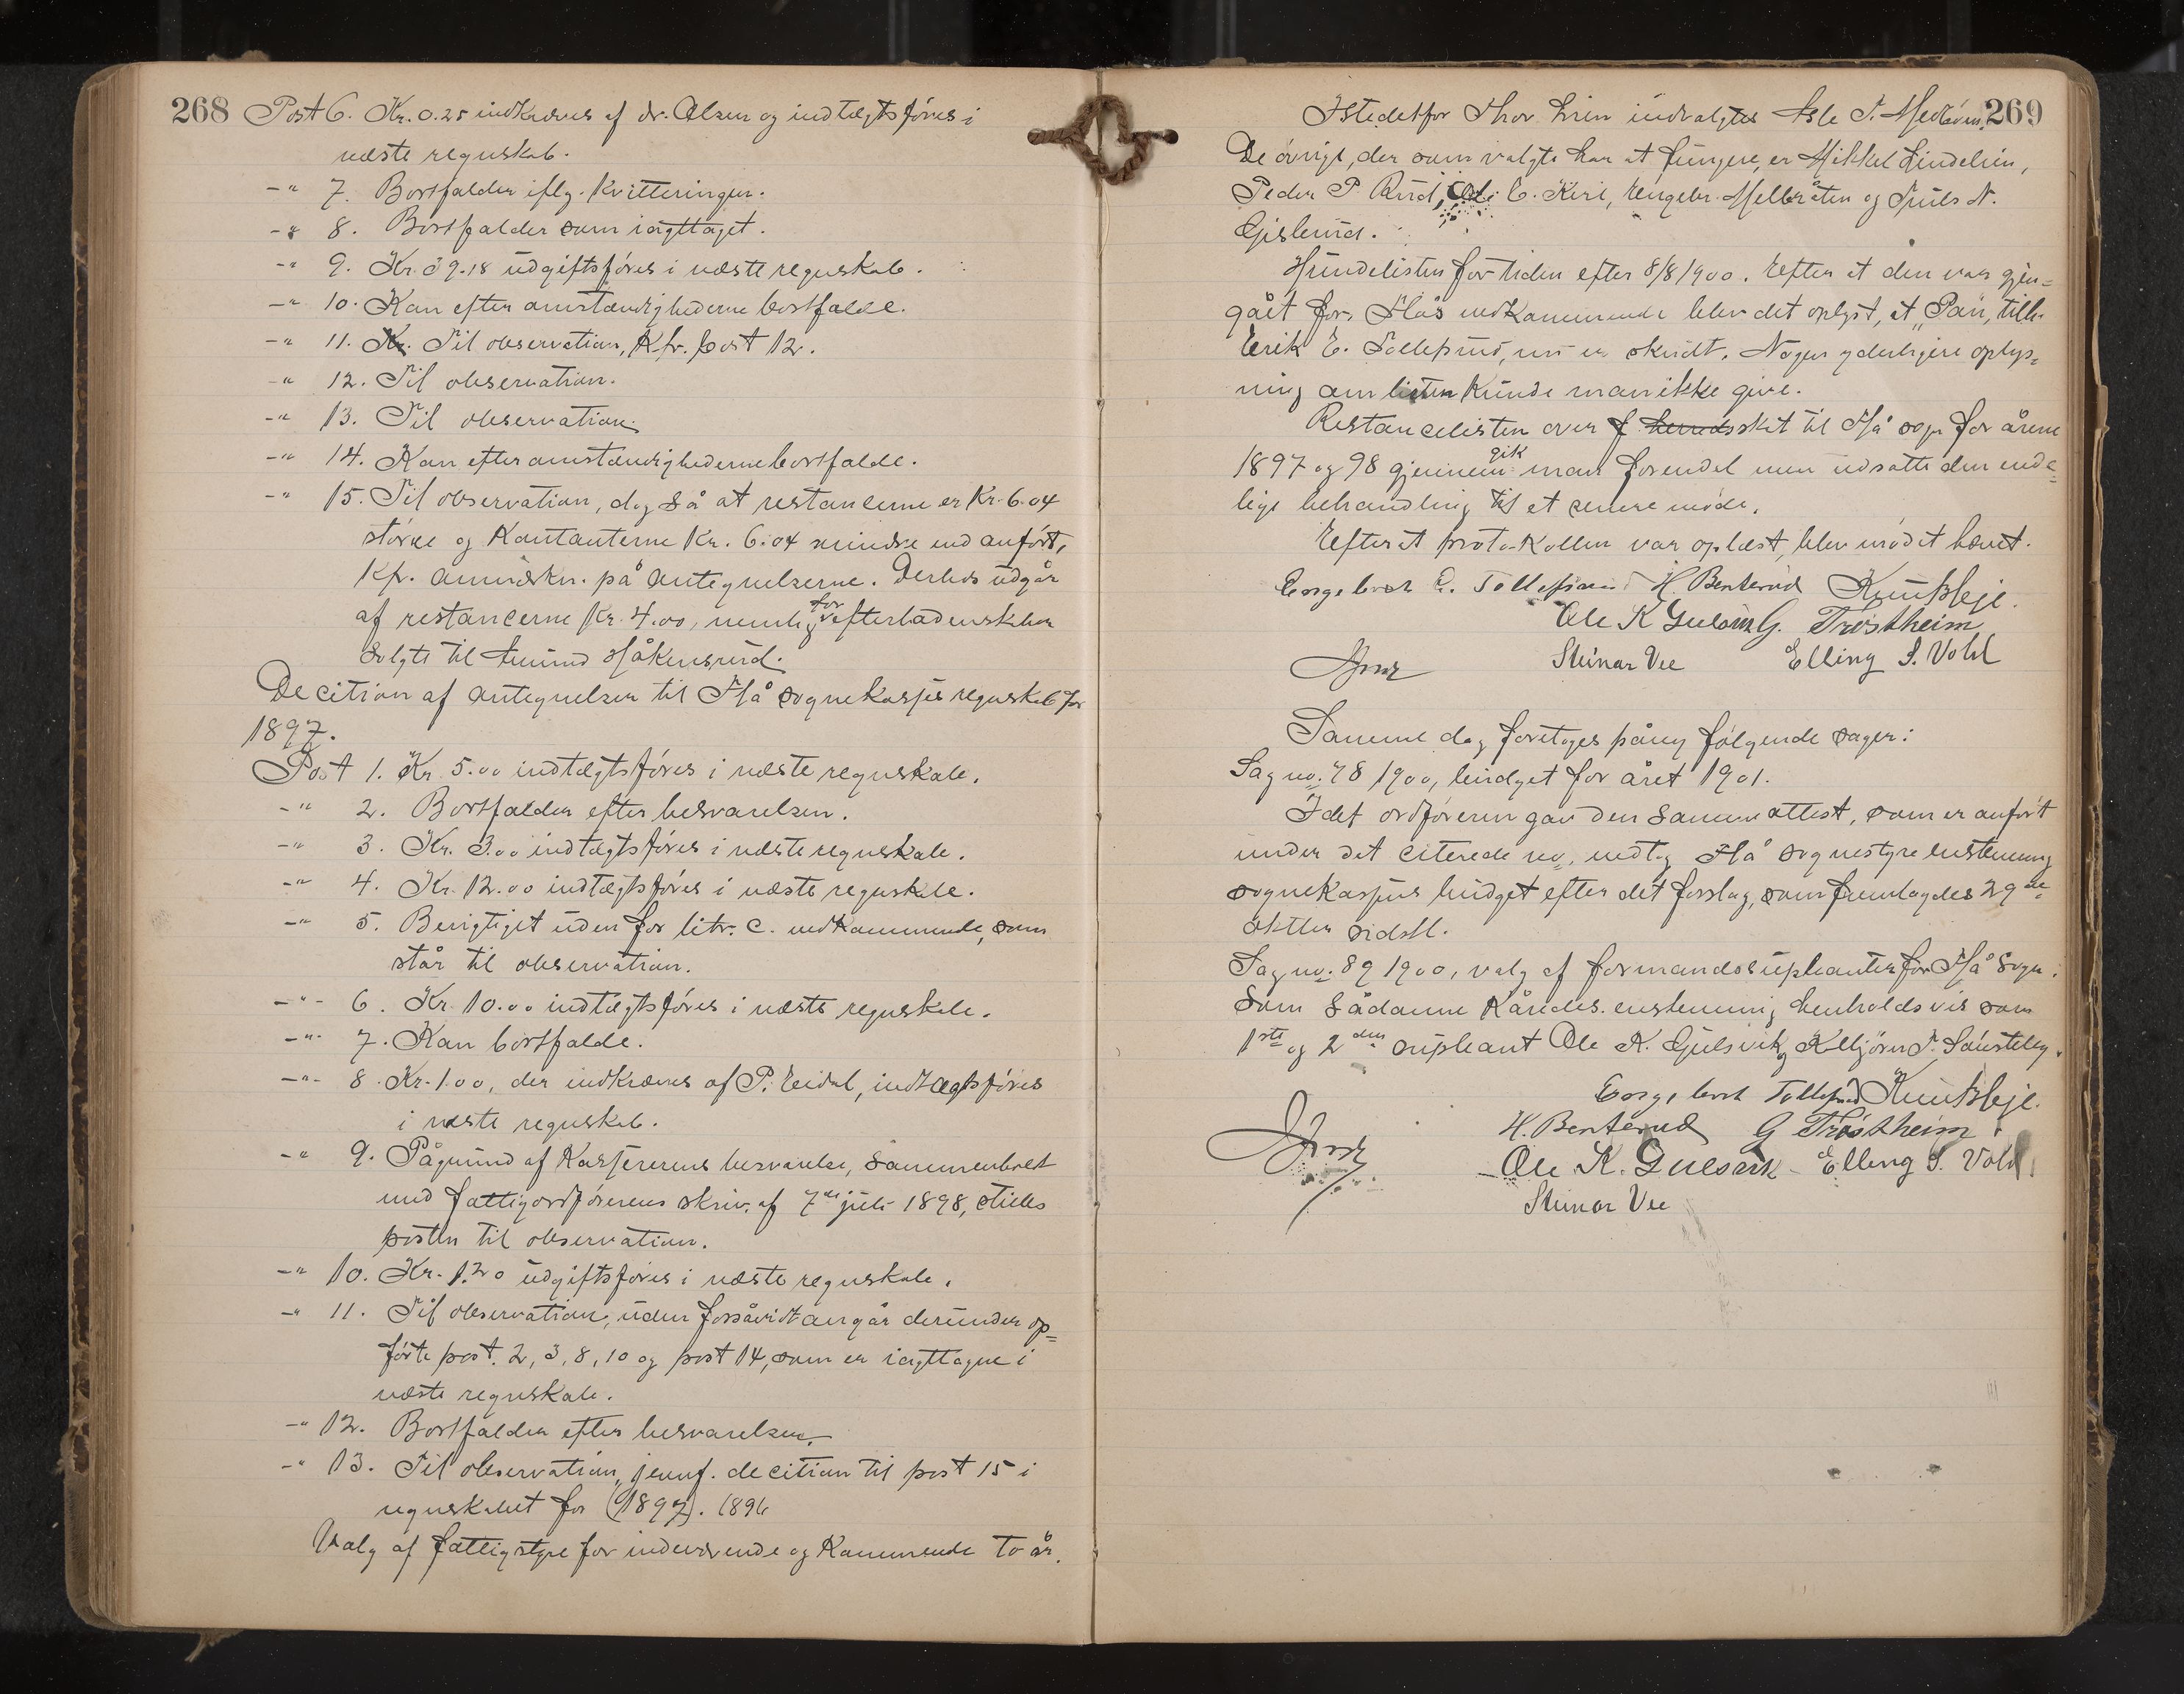 268 Post 6. Kr. 0.25 indkræves af dr. Olsen og indtægtsføres i
næste regnskab.
-"- 7. Bortfalder iflg. kvitteringen.
-"- 8. Bortfalder som iagttaget.
-"- 9. Kr. 39.18 udgiftsføres i næste regnskab.
-"- 10. Kan efter omstændighederne bortfalde.
-"- 11. Kr. Til observation, Kfr. post 12.
-"- 12. Til observation.
-"- 13. Til observation.
-"- 14. Kan efter omstændighederne bortfalde.
-"- 15. Til observation, dog så at restancerne er Kr. 6.04
større og Kontanterne Kr. 6.04 mindre end anført,
Kfr. anmærkn. på antegnelserne. Derhos udgår
af restancerne Kr. 4.00, nemlig for efterladenskaber
solgte til Amund Håkensrud.
Decition af antegnelser til Flå sognekasses regnskab for
1897.
Post 1. Kr. 5.00 indtægtsføres i næste regnskab.
-"- 2. Bortfalder efter besvarelsen.
-"- 3. Kr. 3.00 indtægtsføres i næste regnskab.
-"- 4. Kr. 12.00 indtægtsføres i næste regnskab.
-"- 5. Berigtiget uden for litr. c. vedkommende, som
står til observation.
-"- 6. Kr. 10.00 indtægtsføres i næste regnskab.
-"- 7. Kan bortfalde.
-"- 8. Kr. 1.00, der indkræves af P. Eidal, indtægtsføres
i næste regnskab.
-"- 9. Pågrund af Kassererens besvarelse, sammenholdt
med fattigordførerens skriv. af 7de juli 1898, stilles
posten til observation.
-"- 10. Kr. 1.20 udgiftsføres i næste regnskab.
-"- 11. Til observation, uden forsåvidt angår derunder op=
førte post. 2, 3, 8, 10 og post 14, som er iagttagne i
næste regnskab.
-"- 12. Bortfalder efter besvarelsen.
-"- 13. Til observation, jevnf. decition til post 15 i
regnskabet for (1897). 1896
Valg af fattigstyre for indeværende og Kommende to år.
Istedetfor Thor Lien indvalgtes Asle T. 269
De øvrige, der som valgte har at fungere, er Mikkel Lindelien,
Peder P. Rud, Ole E. Engebr. Mellbråten og Truls N.
Gislerud.
Hundelisten for tiden efter 8/8 1900. Efter at den var gjen=
gået for Flås vedkommende blev det oplyst, at "Pan", tilh.
Erik E. Tollefsrud, nu er skudt. Nogen yderligere oplys=
ning om listen Kunde man ikke give.
Restancelisten over f. herredsskat til Flå sogn for årene
1897 og 98 gjennemgik man forendel men udsatte den ende=
lige behandling til et senere møde.
Efterat protokollen var oplæst, blev mødet hævet.
Engebret E. Tollefsrud H. Benterud Knut Sleje.
Ole K Gulsvik G. Trøstheim
Steinar Vee Elling S. Vold
Samme dag foretoges påny følgende sager:
Sag no. 78 1900, budget for året 1901.
Idet ordføreren gav den samme attest, som er anført
under det citerede no, vedtog Flå sognestyre enstemmig
sognekassens budget efter det forslag, som fremlagdes 29de
oktbr sidstl.
Sag no. 89 1900, valg af formandssupleanter for Flå sogn.
Som sådanne Kåredes enstemmig henholdsvis som
1ste og 2den supleant Ole K. Gulsvik og
Engebret Tollefsrud Knut Sleje.
H. Benterud G Trøstheim
Ole K. Gulsvik Elling S. Vold
Steinar Vee